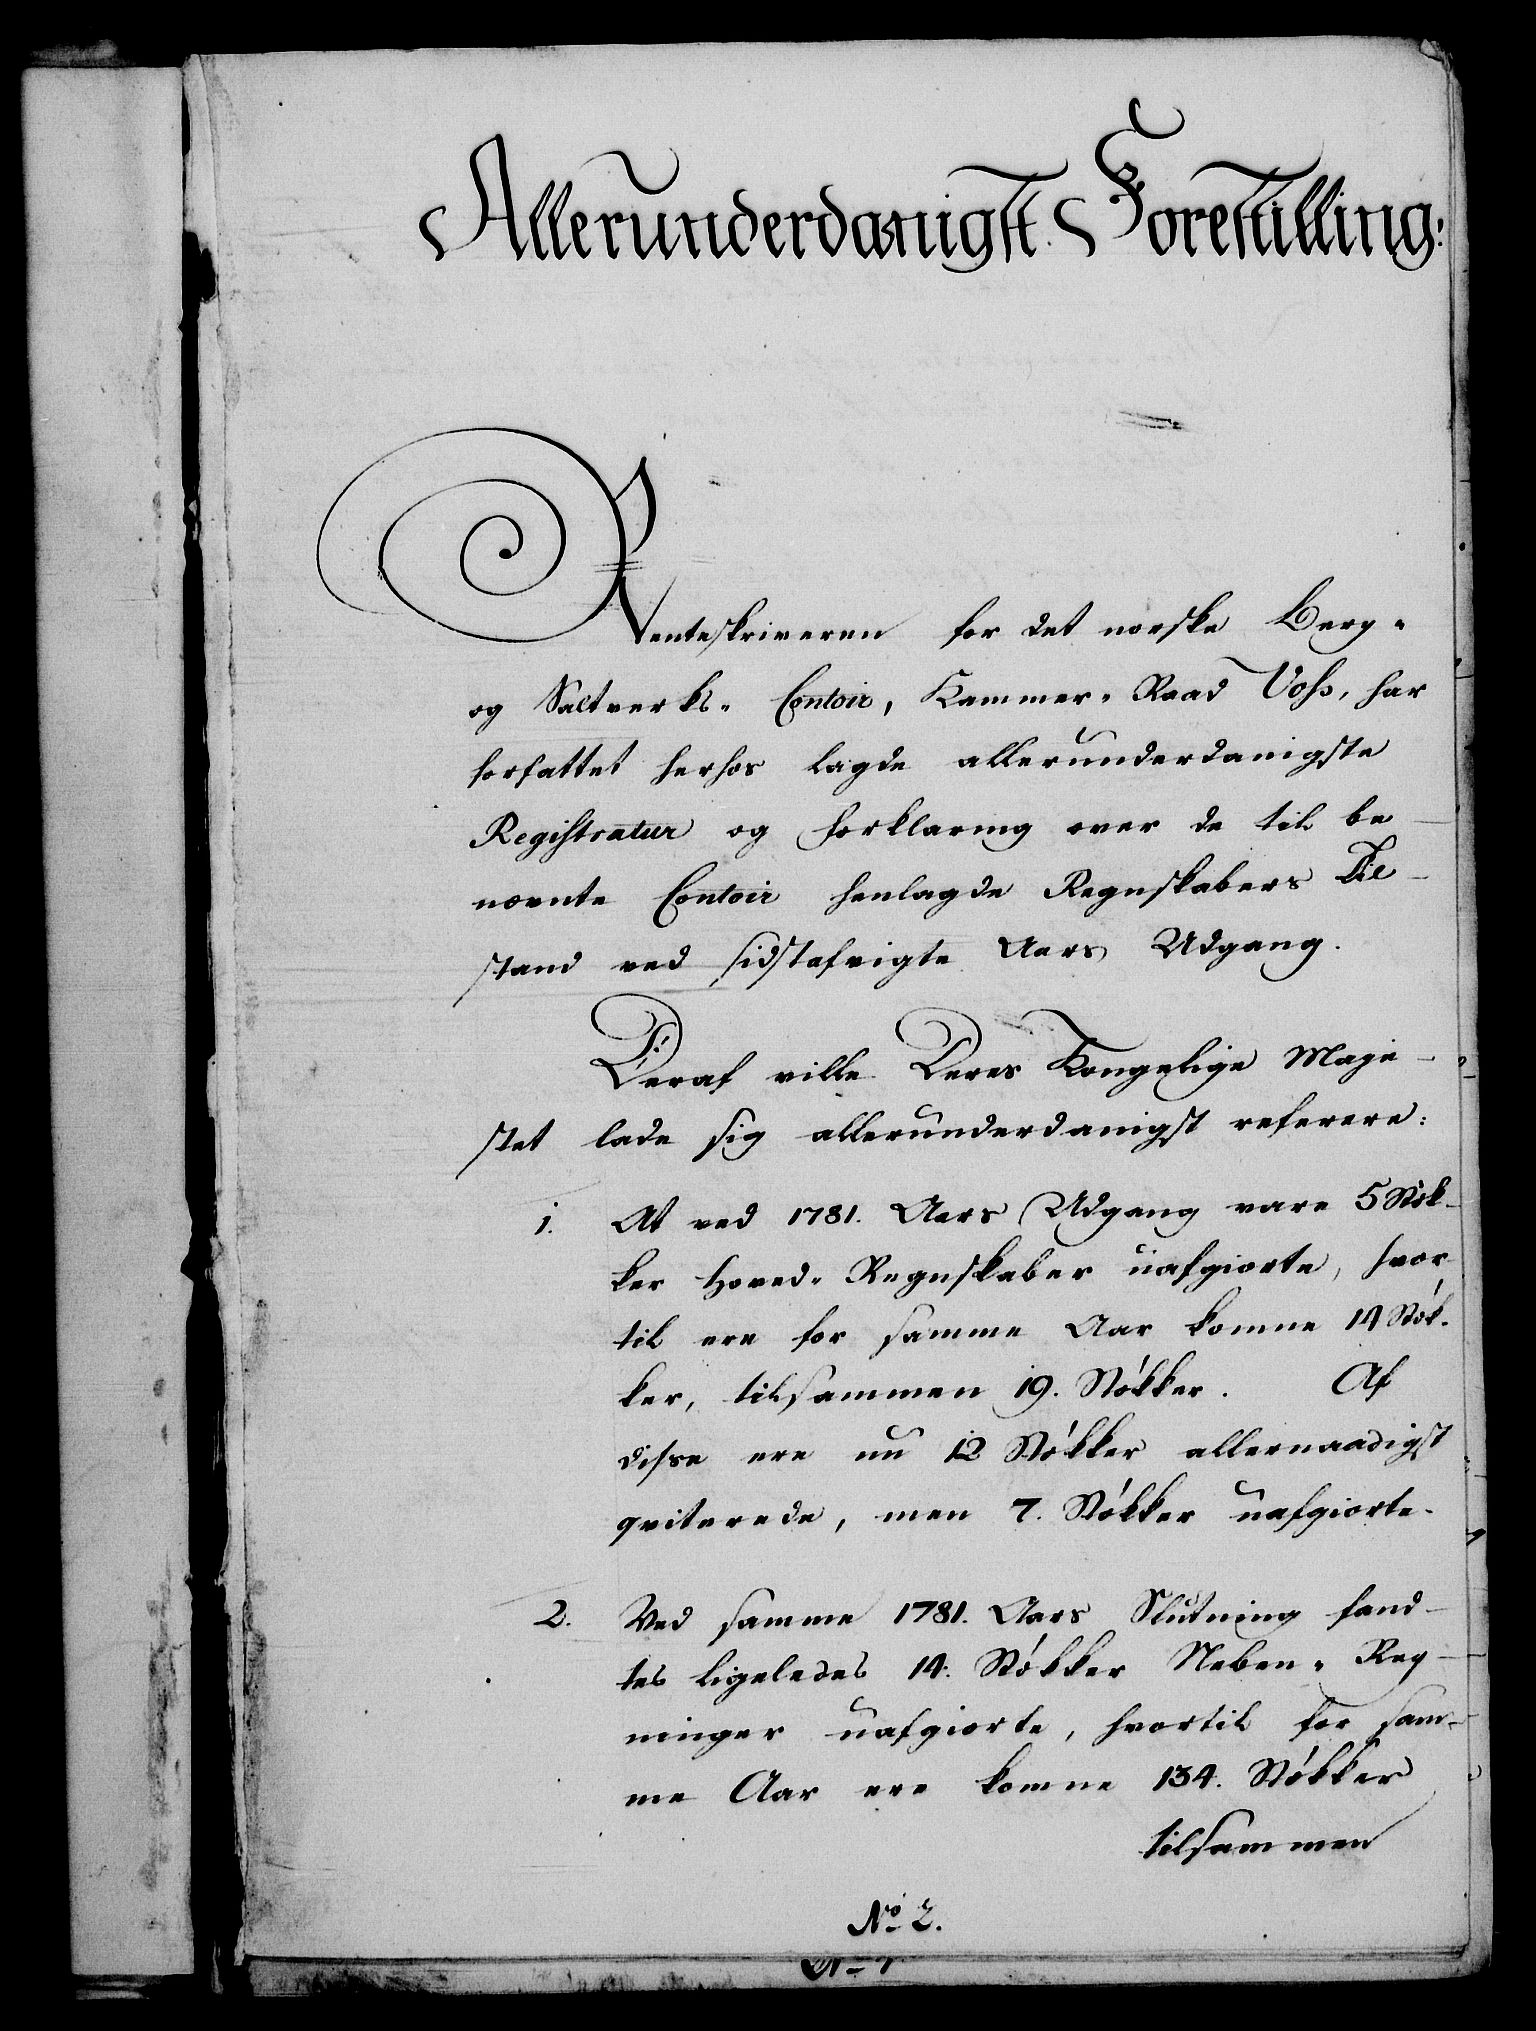 Allerunderdanigst Forestilling:
Renteskriveren for det norske Berg-
og Saltverks- Contoir, Kammer-Raad Voss, har
forfattet herhos lagde allerunderdanigste
Registratur og Forklaring over de til be
nævnte Contoir henlagde Regnskabers Til-
stand ved sidstafvigte Aars Udgang.
Deraf ville Deres Kongelige Maje-
stet lade sig allerunderdanigst referere:
1. At ved 1781. Aars Udgang vare 5 Støk-
ker Hoved-Regnskaber uafgiorte, hvor
til ere for samme Aar komne 14 Støk-
ker, tilsammen 19. Støkker. Af
disse ere nu 12 Støkker allernaadigst
qviterede, men 7. Støkker uafgiorte.
2. Ved samme 1781. Aars Slutning fand-
tes ligeledes 14. Støkker Neben-Reg-
ninger uafgiorte, hvortil for sam-
me Aar ere komne 134. Støkker
tilsammen
No 2.